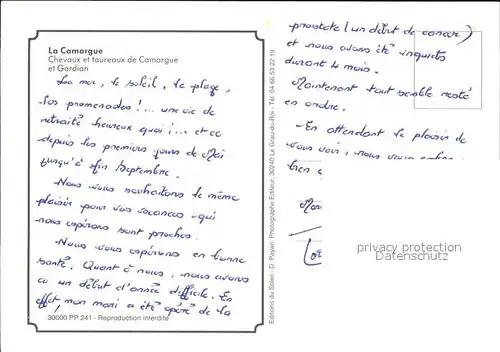 La Camargue
Chevaux et taureaux de Camargue
et Gardian
La mer, le soleil, la plage,
les promenades !... une vie de
retraité heureux quoi !... et ce
depuis les premiers jours de Mai
jusqu'à fin Septembre.
Nous vous souhaitons le même
plaisir pour vos vacances qui
nous espérons sont proches.
Nous vous espérons en bonne
santé. Quant à nous, nous avons
eu un début d'année difficile. En
effet mon mari a été opéré de la
30000 PP 241 - Reproduction interdite
Editions du Soleil - D. Payan, Photographe Editeur, 30240 Le Grau-du-Roi - Tél. 04 66 53 22 19
prostate (un début de cancer)
et nous avons été inquiets
durant 4 mois.
Maintenant tout semble resté
en ordre.
En attendant le plaisir de
vous voir, nous vous
bien
privacy protection
Datenschutz